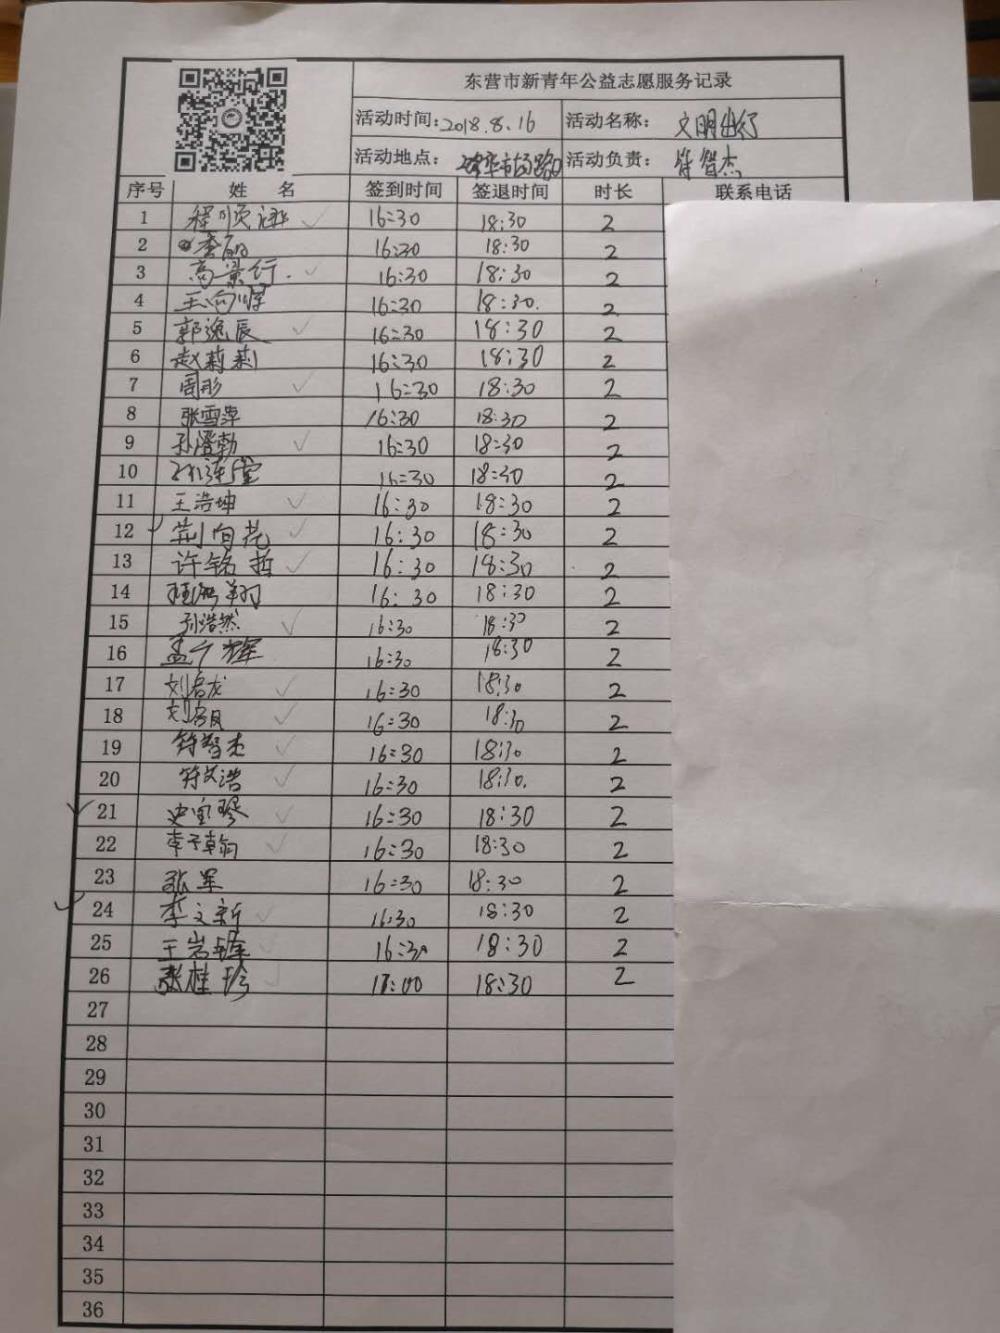 东营市新青年公益志愿服务记录
活动时间:2018.8.16 活动名称: 文明出行
活动地点: 活动负责: 符智杰
序号 姓 名 签到时间 签退时间 时长 联系电话
1 程顺 16:30 18:30 2
2 李丽 16:30 18:30 2
3 高景行. 16:30 18:30 2
4 王向晖 16:30 18:30. 2
5 郭逸辰 16:30 18:30 2
6 赵莉莉 16:30 18:30 2
7 周彤 16:30 18:30 2
8 张雪萍 16:30 18:30 2
9 孙澄勃 16:30 18:30 2
10 16:30 18:30 2
11 王浩坤 16:30 18:30 2
12 荆向花 16:30 18:30 2
13 许铭哲 16:30 18:30 2
14 16:30 18:30 2
15 孙浩然 16:30 18:30 2
16 孟令辉 16:30 18:30 2
17 刘春龙 16:30 18:30 2
18 刘 16:30 18:30 2
19 符智杰 16:30 18:30 2
20 符文浩 16:30 18:30. 2
21 史宝琴 16:30 18:30 2
22 李子翰 16:30 18:30 2
23 张军 16:30 18:30 2
24 李文新 16:30 18:30 2
25 王岩峰 16:30 18:30 2
26 张桂珍 17:00 18:30 2
27
28
29
30
31
32
33
34
35
36